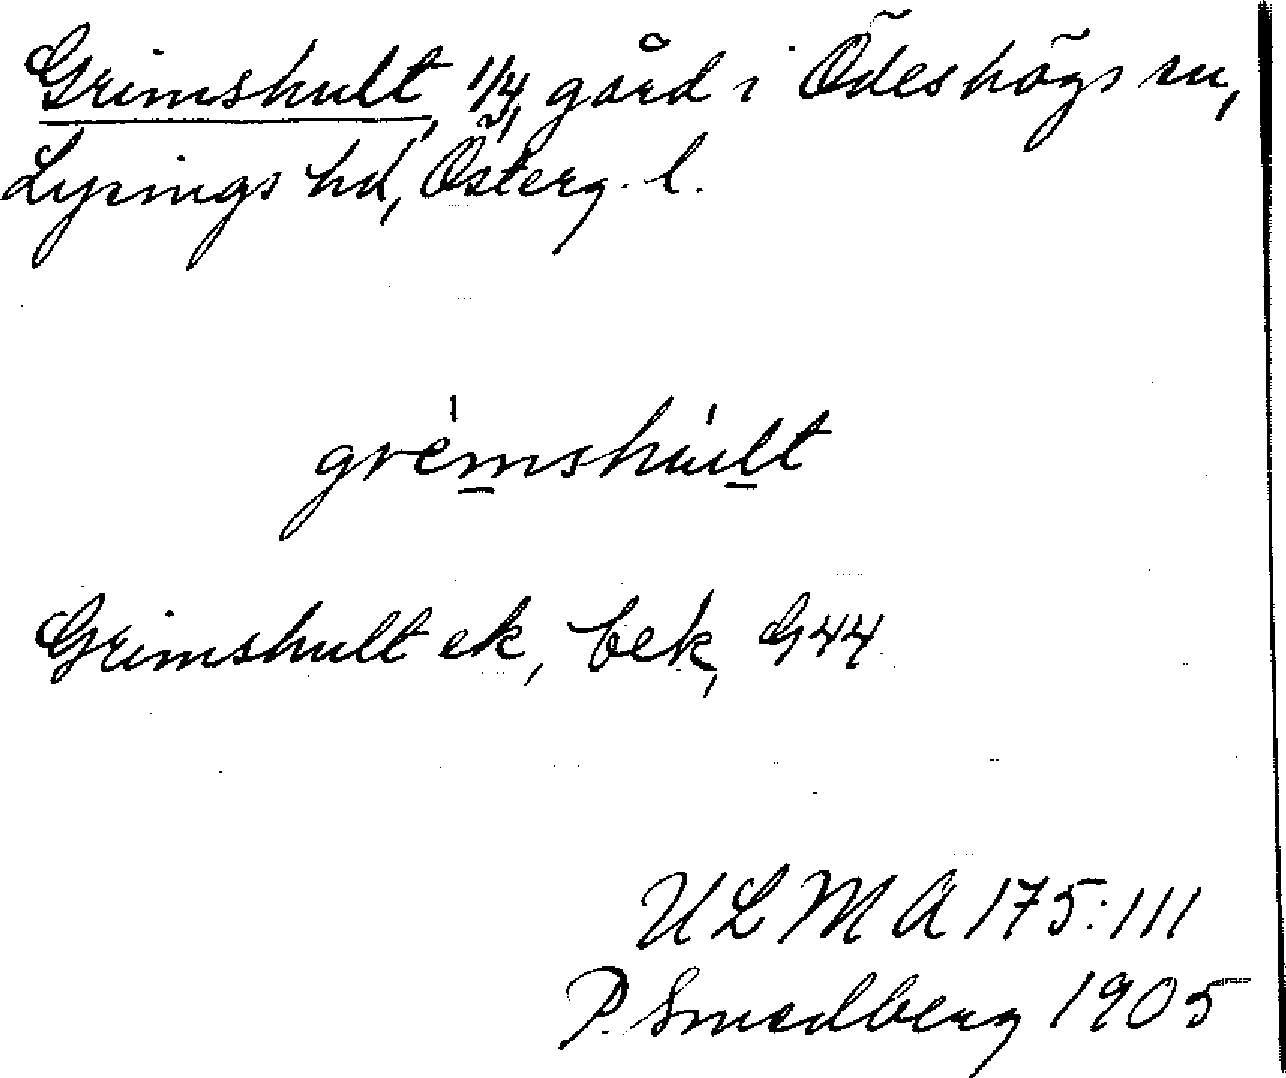 Grimshult, 1/4, gård i Ödeshögs sn,
Lysings hd, Österg. l.
grèmshúlt
Grimshult ek, bek, G44
ULMA 175:111
P. Smedberg 1905